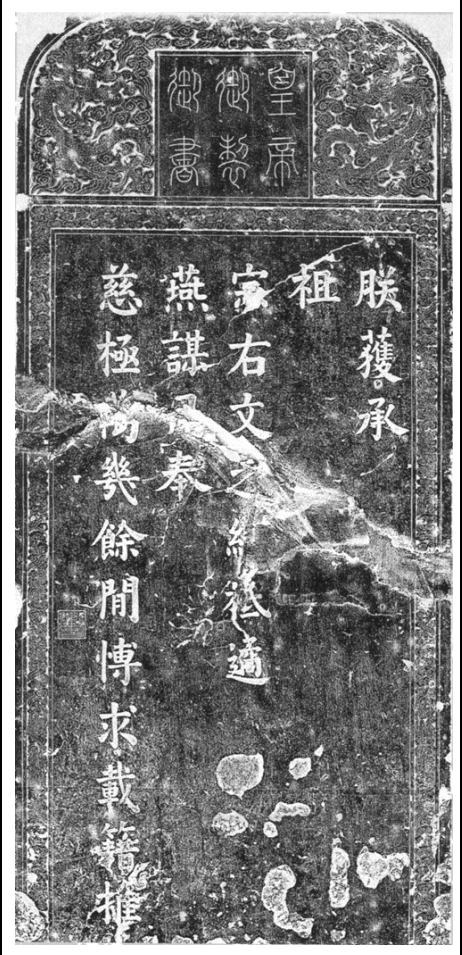 皇帝
御製
御書
朕獲承
祖
宗右文之緒祗遹
燕謀日奉
慈極萬幾餘閒愽求載籍推